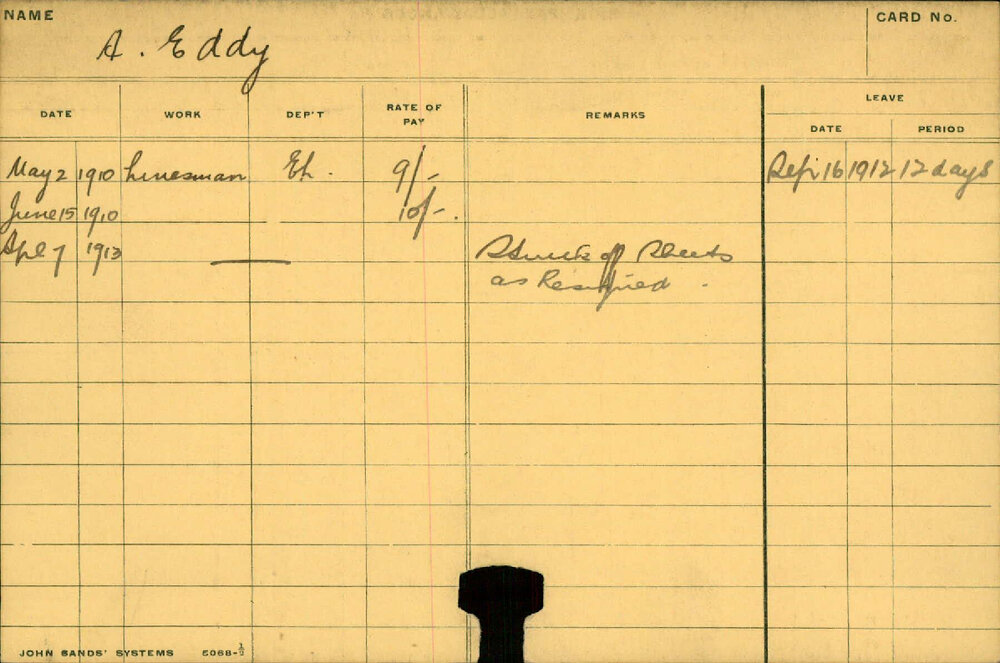 NAME
A. Eddy
CARD No.
DATE WORK DEP'T RATE OF PAY REMARKS LEAVE
DATE PERIOD
May 2 1910 Linesman 9/- Sept 16 1912 12 days
June 15 1910 10/-.
Apl 7 1913 — Struck off Sheets
as Resigned.
JOHN SANDS' SYSTEMS 5068-½